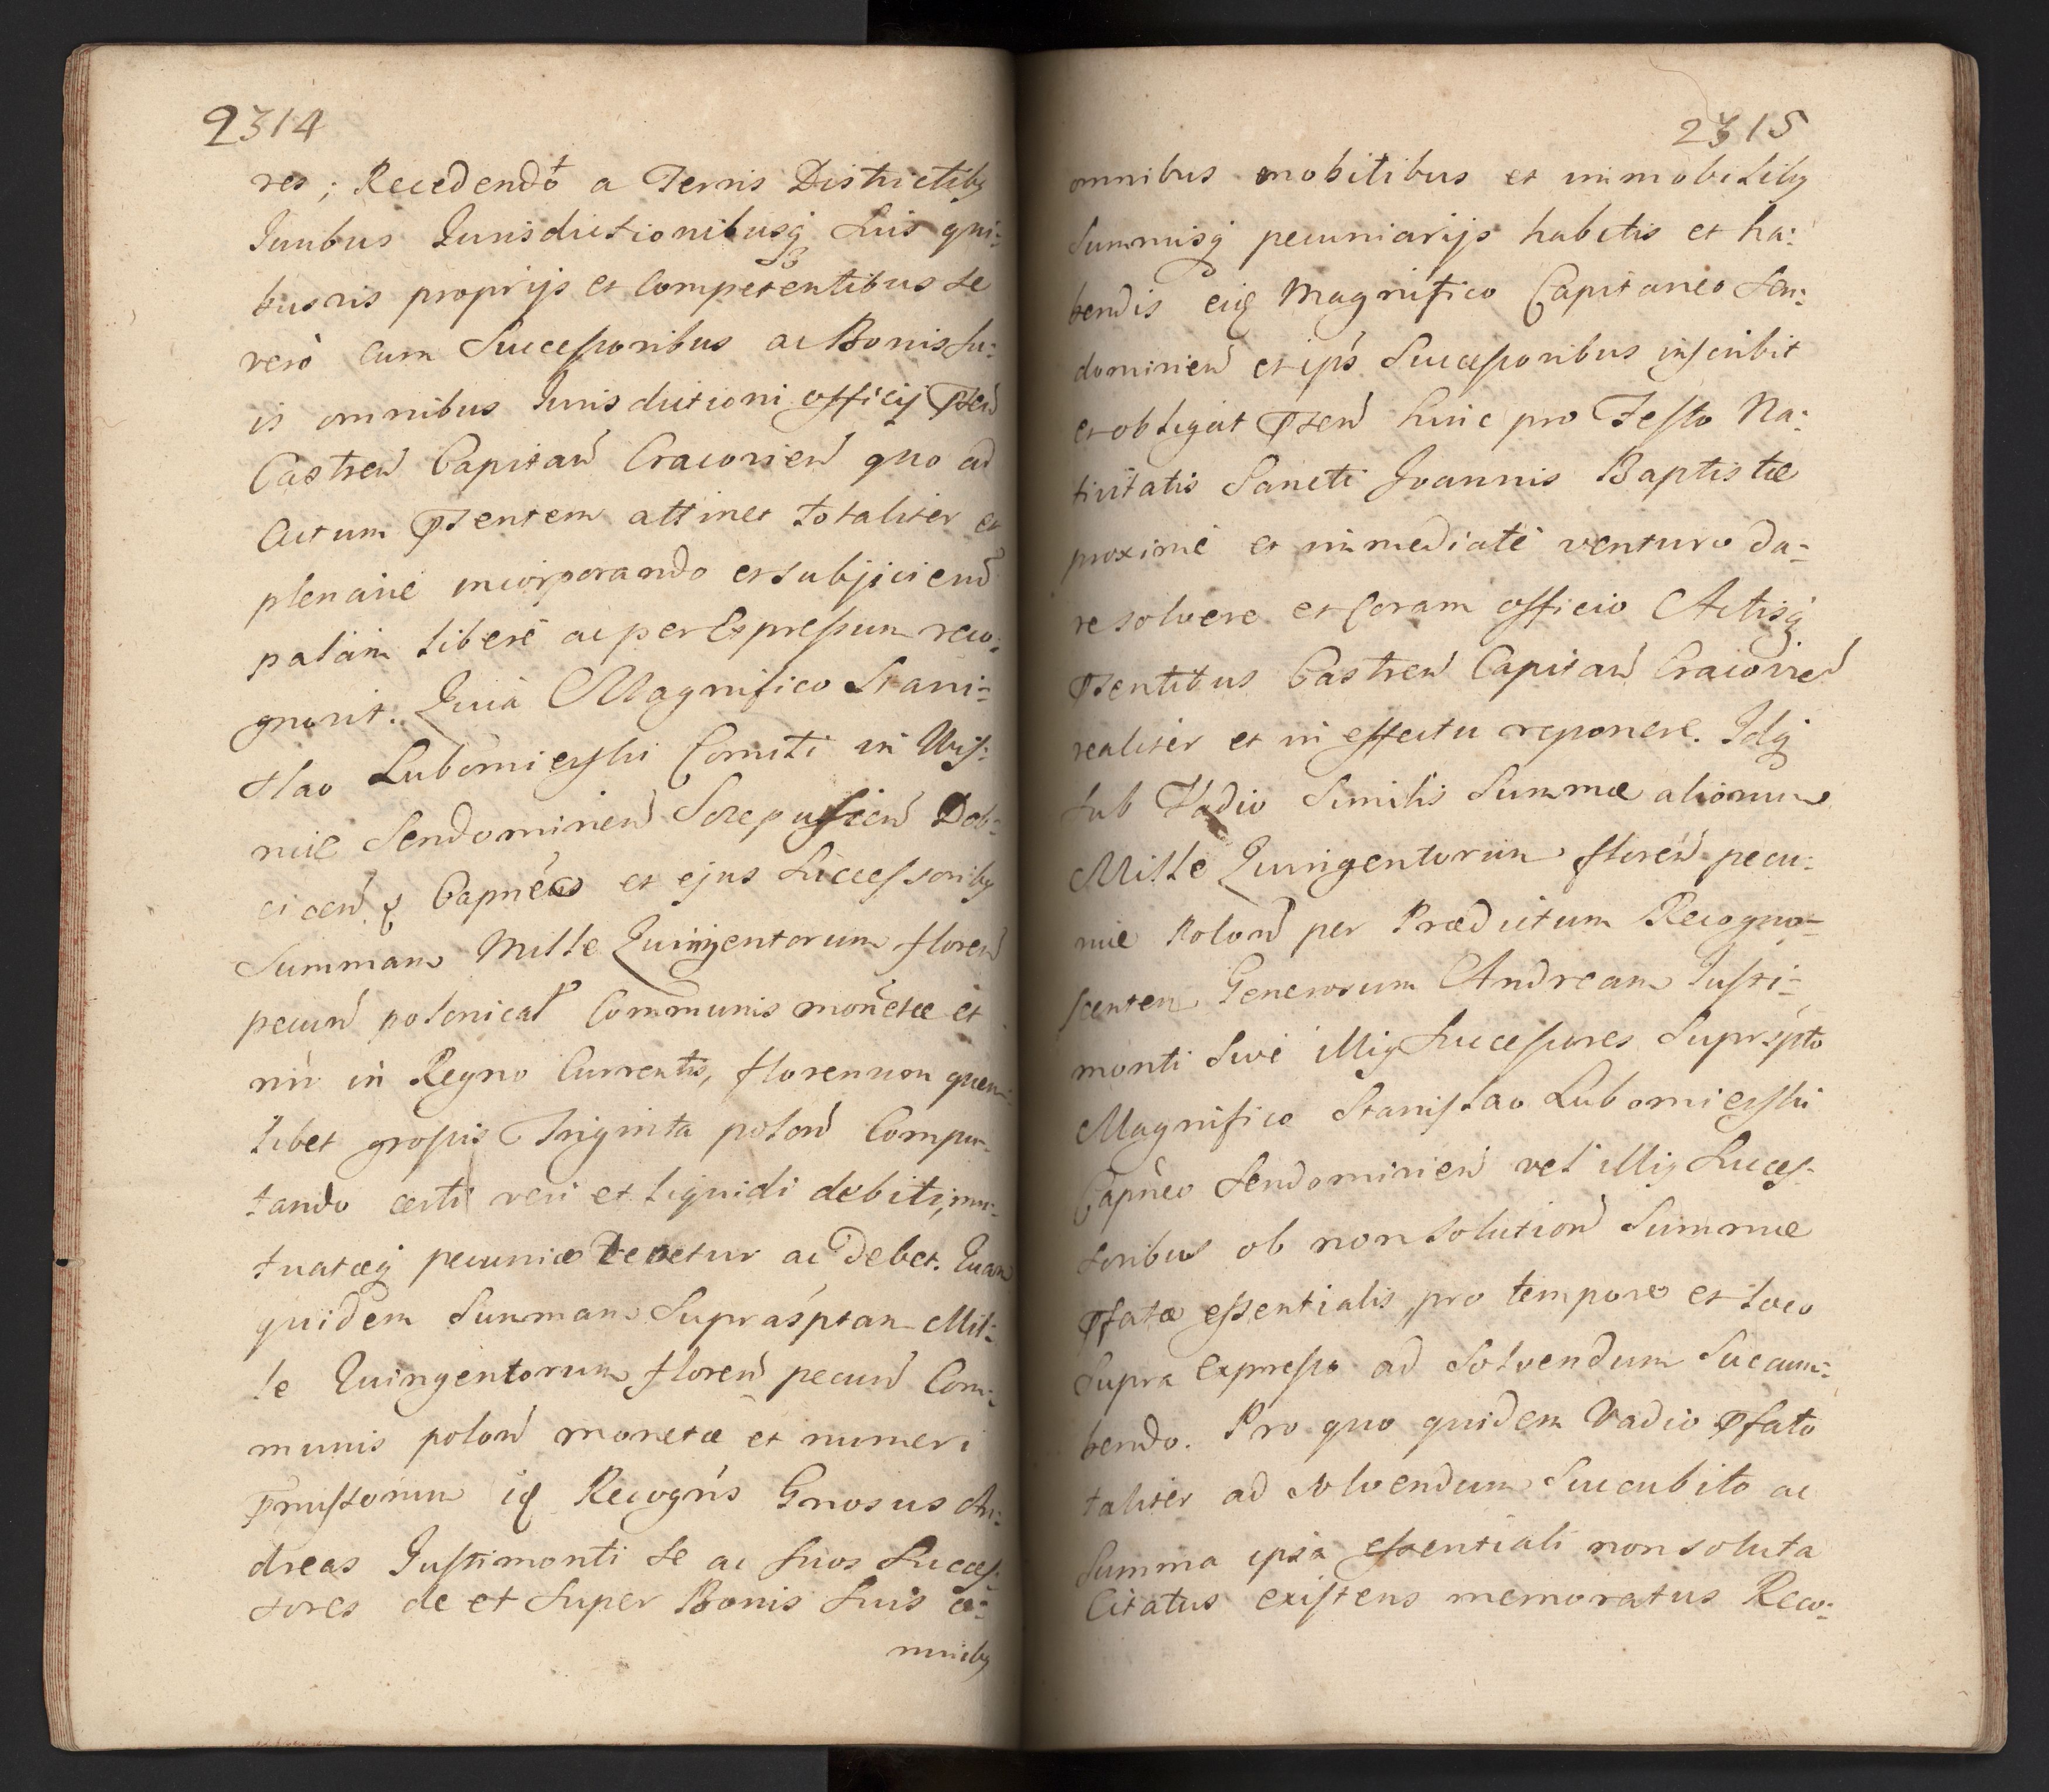 2314
res; Recedendo a Terris Districtibq
Juribus Jurisdictionibusq Suis qui-
busvis proprijs et Competentibus Se
vero cum Successoribus ac Bonis Su:
is omnibus Jurisdictioni officij Pñsen
Castren Capitan Cracovien quo ad
Actum Pñsentem attinet totaliter et
plenarie incorporando et subjiciend
palàm liberè ac per Expressum reco:
gnovit. Quia Magnifico Stani-
slao Lubomierski Comiti in Wis-
nicz Sendomirien Scepusien Dob-
cicen & Capnëo et ejus Successoribq
Summam Mille Quingentorum floren
pecun polonical Communis monetæ et
nri in Regno Currentis, florennon quem-
libet grossis Triginta polon Compu-
tando certi veri et liquidi debiti, mu-
tuatæq pecuniæ tenetur ac debet. Quam
quidem Summam Suprasptam Mil-
le Quingentorum floren pecun Com-
munis polon monetæ et numeri
Pmissorum iq Recogñs Gnosus An-
dreas Justimonti Se ac Suos Succes-
sores de et Super Bonis Suis o-
mnibq
2315
omnibus mobilibus et immobilibq
Summisq pecuniarijs habitis et ha:
bendis eiq Magnifico Capitaneo Sen:
domirien et ips Successoribus inscribit
et obligat Pñsen hinc pro Festo Na:
tivitatis Sancti Joannis Baptistæ
proximè et immediatè venturo da-
re solvere et Coram officio Actisq
Pñsentibus Castren Capitan Cracovien
realiter et in effectu reponere. Idq
Sub Vadio Similis Summæ aliorum
Mille Quingentorum floren pecu:
niæ Polon per Prædictum Recogno-
scentem Generosum Andream Justi-
monti Sive illiq Successores Suprspto
Magnifico Stanislao Lubomierski
Capneo Sendomirien vel illiq Succes-
soribus ob non Solution Summæ
Pfatæ essentialis, pro tempore et loco
Supra expresso ad Solvendum Succum-
bendo. Pro quo quidem Vadio Pfato
taliter ad Solvendum Succubito ac
Summa ipsa essentiali non soluta
Citatus existens memoratus Reco-